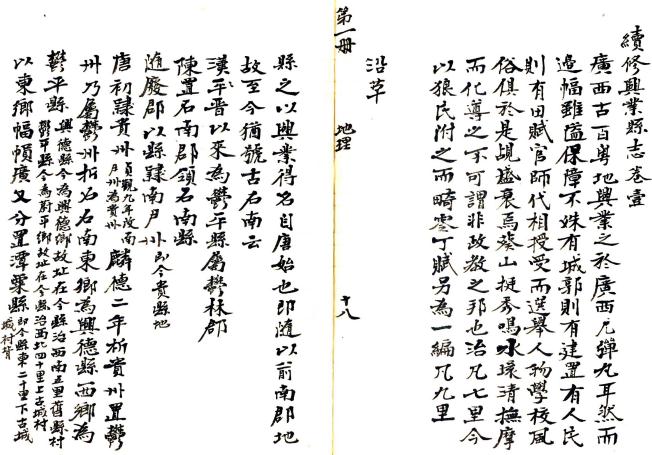 續修興業縣志卷壹
廣西古百粵地興業之於廣西尤彈丸耳然而
邉幅雖隘保障不姝有城郭則有建置有人民
則有田賦官師代相授受而選舉人物學校風
俗俱於是覘盛衰焉葵山挺秀鳴水環清撫摩
而化導之不可謂非政教之邦也治凡七里今
以狼民附之而畸零丁賦另為一編凡九里
沿革
第一册
地理
十八
縣之以興業得名自唐始也即隨以前南郡地
故至今猶號古石南云
漢平晋以來為鬱平縣屬鬱林郡
陳置石南郡領石南縣
随廢郡以縣隸南尹州即今貴縣地
唐初隸貴州貞觀九年改南尹州為貴州麟德二年析貴州置鬱
州乃屬鬱州析石石南東鄉為興德縣西鄉為
鬱平縣興德縣今為興德鄉故址在今縣治西南五里舊縣村鬱平縣今為蔚平鄉故址在今縣治西北四十里上古城村
以東鄉幅幀廣又分置潭粟縣即今縣東二十里下古城城村背